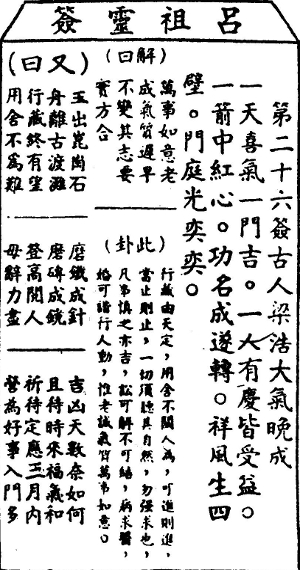 呂祖靈簽
第二十六簽古人梁浩大氣晚成
一天喜氣一門吉。一人有慶皆受益。
一箭中紅心。功名成遂轉。祥風生四
壁。門庭光奕奕。
(解曰)
萬事如意老
成氣質遲早
不變其志要
實方合
(此卦)
行藏由天定,用舍不關人為,可進則進,
當止則止,一切須聽其自然,勿強求也,
凡事慎之亦吉,訟可解不可結,病求醫,
恰可謂行人動,惟老誠氣質萬事如意。
(又曰)
玉出崑岡石
舟離古渡灘
行藏終有望
用舍不為難
磨鐵成針
磨磚成鏡
登高閱人
毋辭力盡
吉凶天數奈如何
且待時來福義和
祈待定應三月內
聲為好事入門多